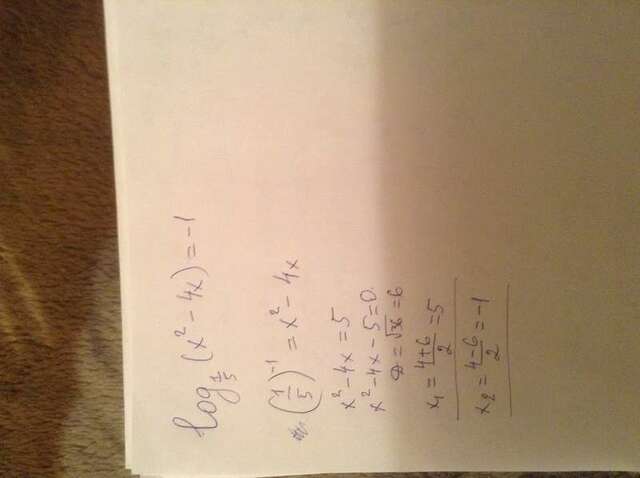 log_{1/5} (x² - 4x) = -1
(1/5)⁻¹ = x² - 4x
x² - 4x = 5
x² - 4x - 5 = 0
D = √36 = 6
x₁ = (4+6)/2 = 5
x₂ = (4-6)/2 = -1